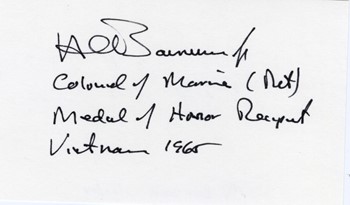 Colonel of Marines (Ret)
Medal of Honor Recipient
Vietnam 1965